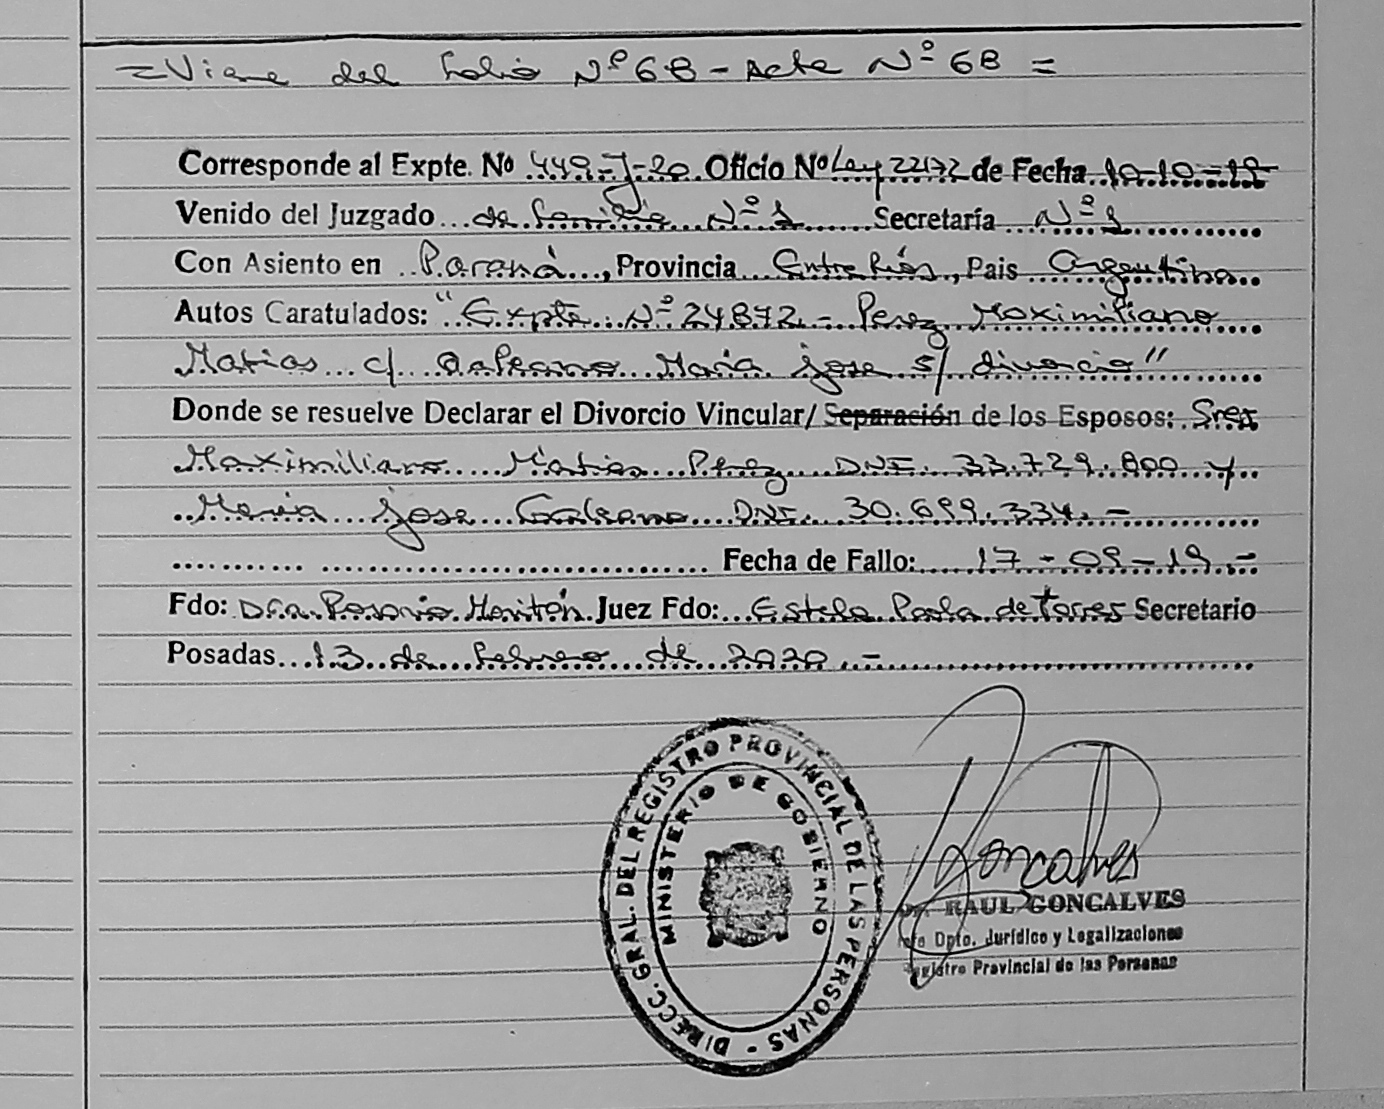 = Viene del Folio Nº 68 - Acta Nº 68 =
Corresponde al Expte. Nº 449-J-20 Oficio Nº Ley 22172 de Fecha 10-10-19
Venido del Juzgado de Familia Nº 1 Secretaría Nº 1
Con Asiento en Paraná, Provincia Entre Ríos, Pais Argentina
Autos Caratulados: "Expte Nº 24872 - Perez Maximiliano
Matias c/ Galeano Maria Jose s/ divorcio"
Donde se resuelve Declarar el Divorcio Vincular/ Separación de los Esposos: Sres
Maximiliano Matias Perez DNI. 33.729.800 y
Maria Jose Galeano DNI. 30.699.334. -
Fecha de Fallo: 17-09-19.-
Fdo: Dra. Rosario Moritán Juez Fdo: Estela Paola de Torres Secretario
Posadas 13 de febrero de 2020.-
DIRECC. GRAL. DEL REGISTRO PROVINCIAL DE LAS PERSONAS -
MINISTERIO DE GOBIERNO
Goncalves
Dr. RAUL GONCALVES
Jefe Dpto. Jurídico y Legalizaciones
Registro Provincial de las Personas